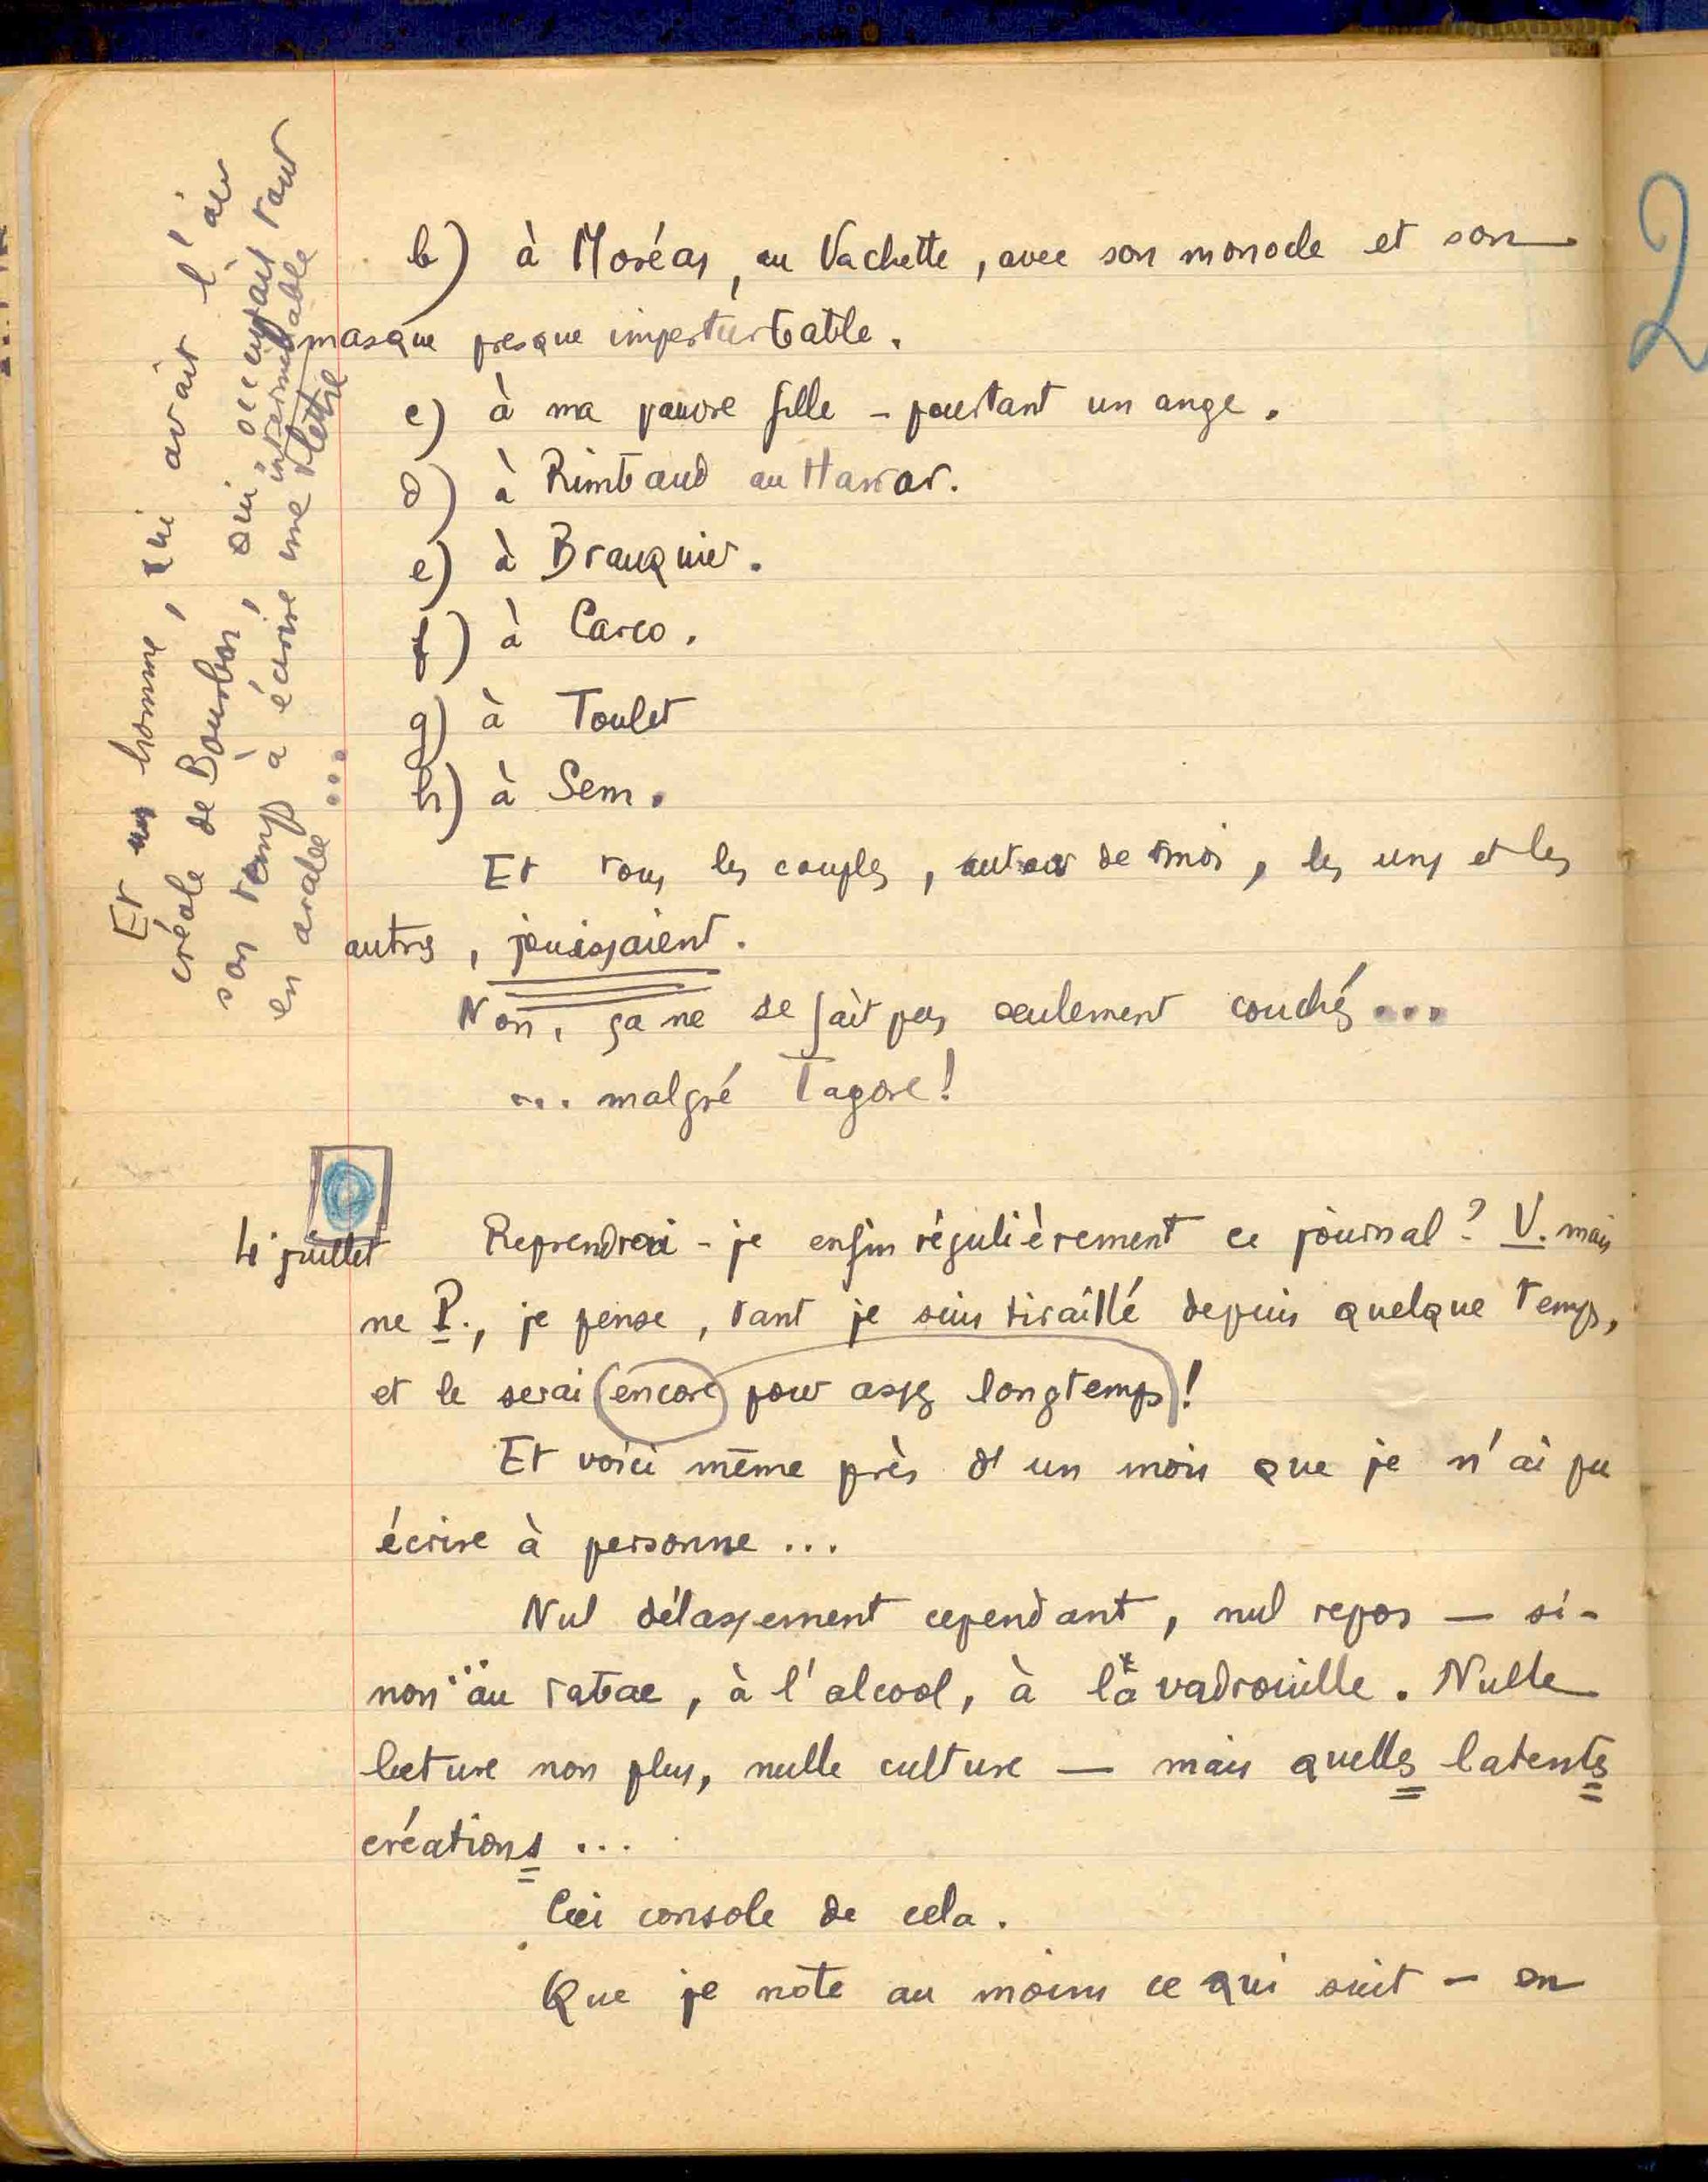 Et un homme, qui avait l'air
créole de Bourbon, qui occupait tout
son temps à écrire une interminable lettre
en arabe ...
b) à Moréas, au Vachette, avec son monocle et son
masque presque imperturbable.
c) à ma pauvre fille - pourtant un ange.
d) à Rimbaud au Harrar.
e) à Brauquier.
f) à Carco.
g) à Toulet
h) à Sem.
Et tous les couples, autour de moi, les uns et les
autres, jouissaient.
Non, ça ne se fait pas seulement couchés...
... malgré Tagore!
4 juillet
Reprendrai-je enfin régulièrement ce journal? V. mais
ne P., je pense, tant je suis tiraillé depuis quelque temps,
et le serai encore pour assez longtemps!
Et voici même près d'un mois que je n'ai pu
écrire à personne...
Nul délassement cependant, nul repos — si-
non au tabac, à l'alcool, à la vadrouille. Nulle
lecture non plus, nulle culture — mais quelles latentes
créations ...
Ceci console de cela.
Que je note au moins ce qui suit - on
2